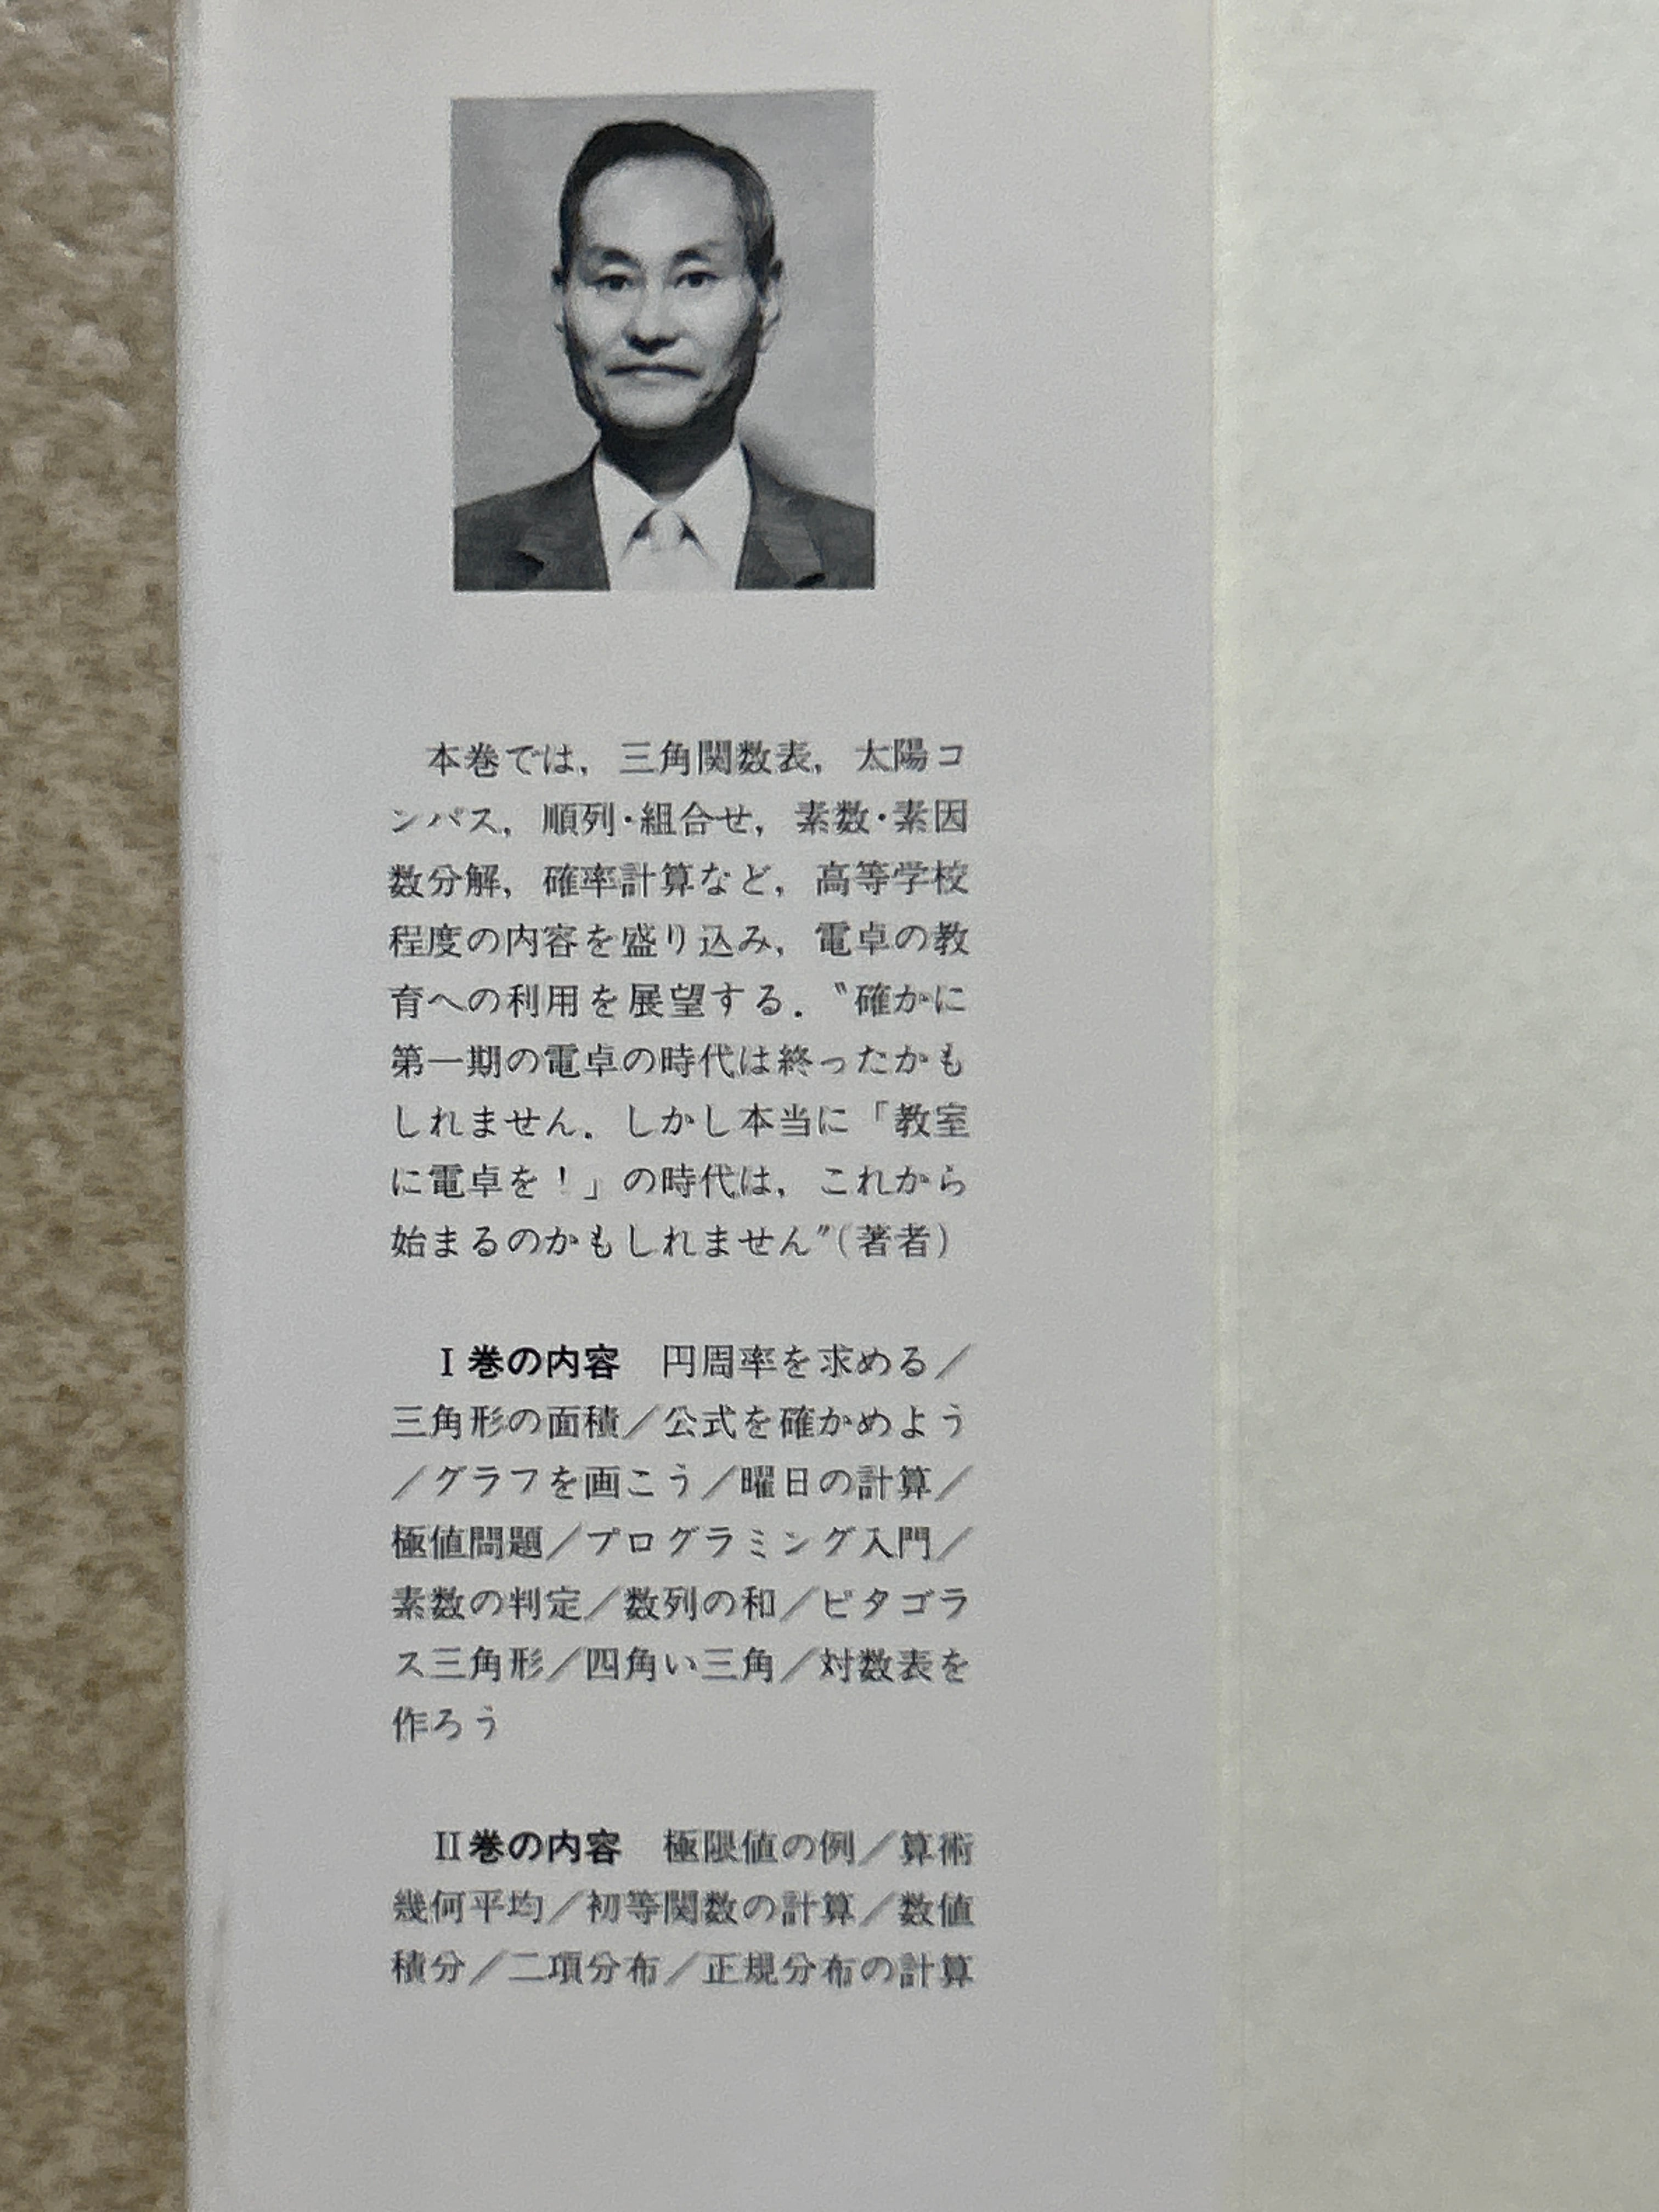 本巻では，三角関数表，太陽コ
ンパス，順列・組合せ，素数・素因
数分解，確率計算など，高等学校
程度の内容を盛り込み，電卓の教
育への利用を展望する．〝確かに
第一期の電卓の時代は終ったかも
しれません．しかし本当に「教室
に電卓を！」の時代は，これから
始まるのかもしれません〞（著者）
Ⅰ巻の内容　円周率を求める／
三角形の面積／公式を確かめよう
／グラフを画こう／曜日の計算／
極値問題／プログラミング入門／
素数の判定／数列の和／ピタゴラ
ス三角形／四角い三角／対数表を
作ろう
Ⅱ巻の内容　極限値の例／算術
幾何平均／初等関数の計算／数値
積分／二項分布／正規分布の計算